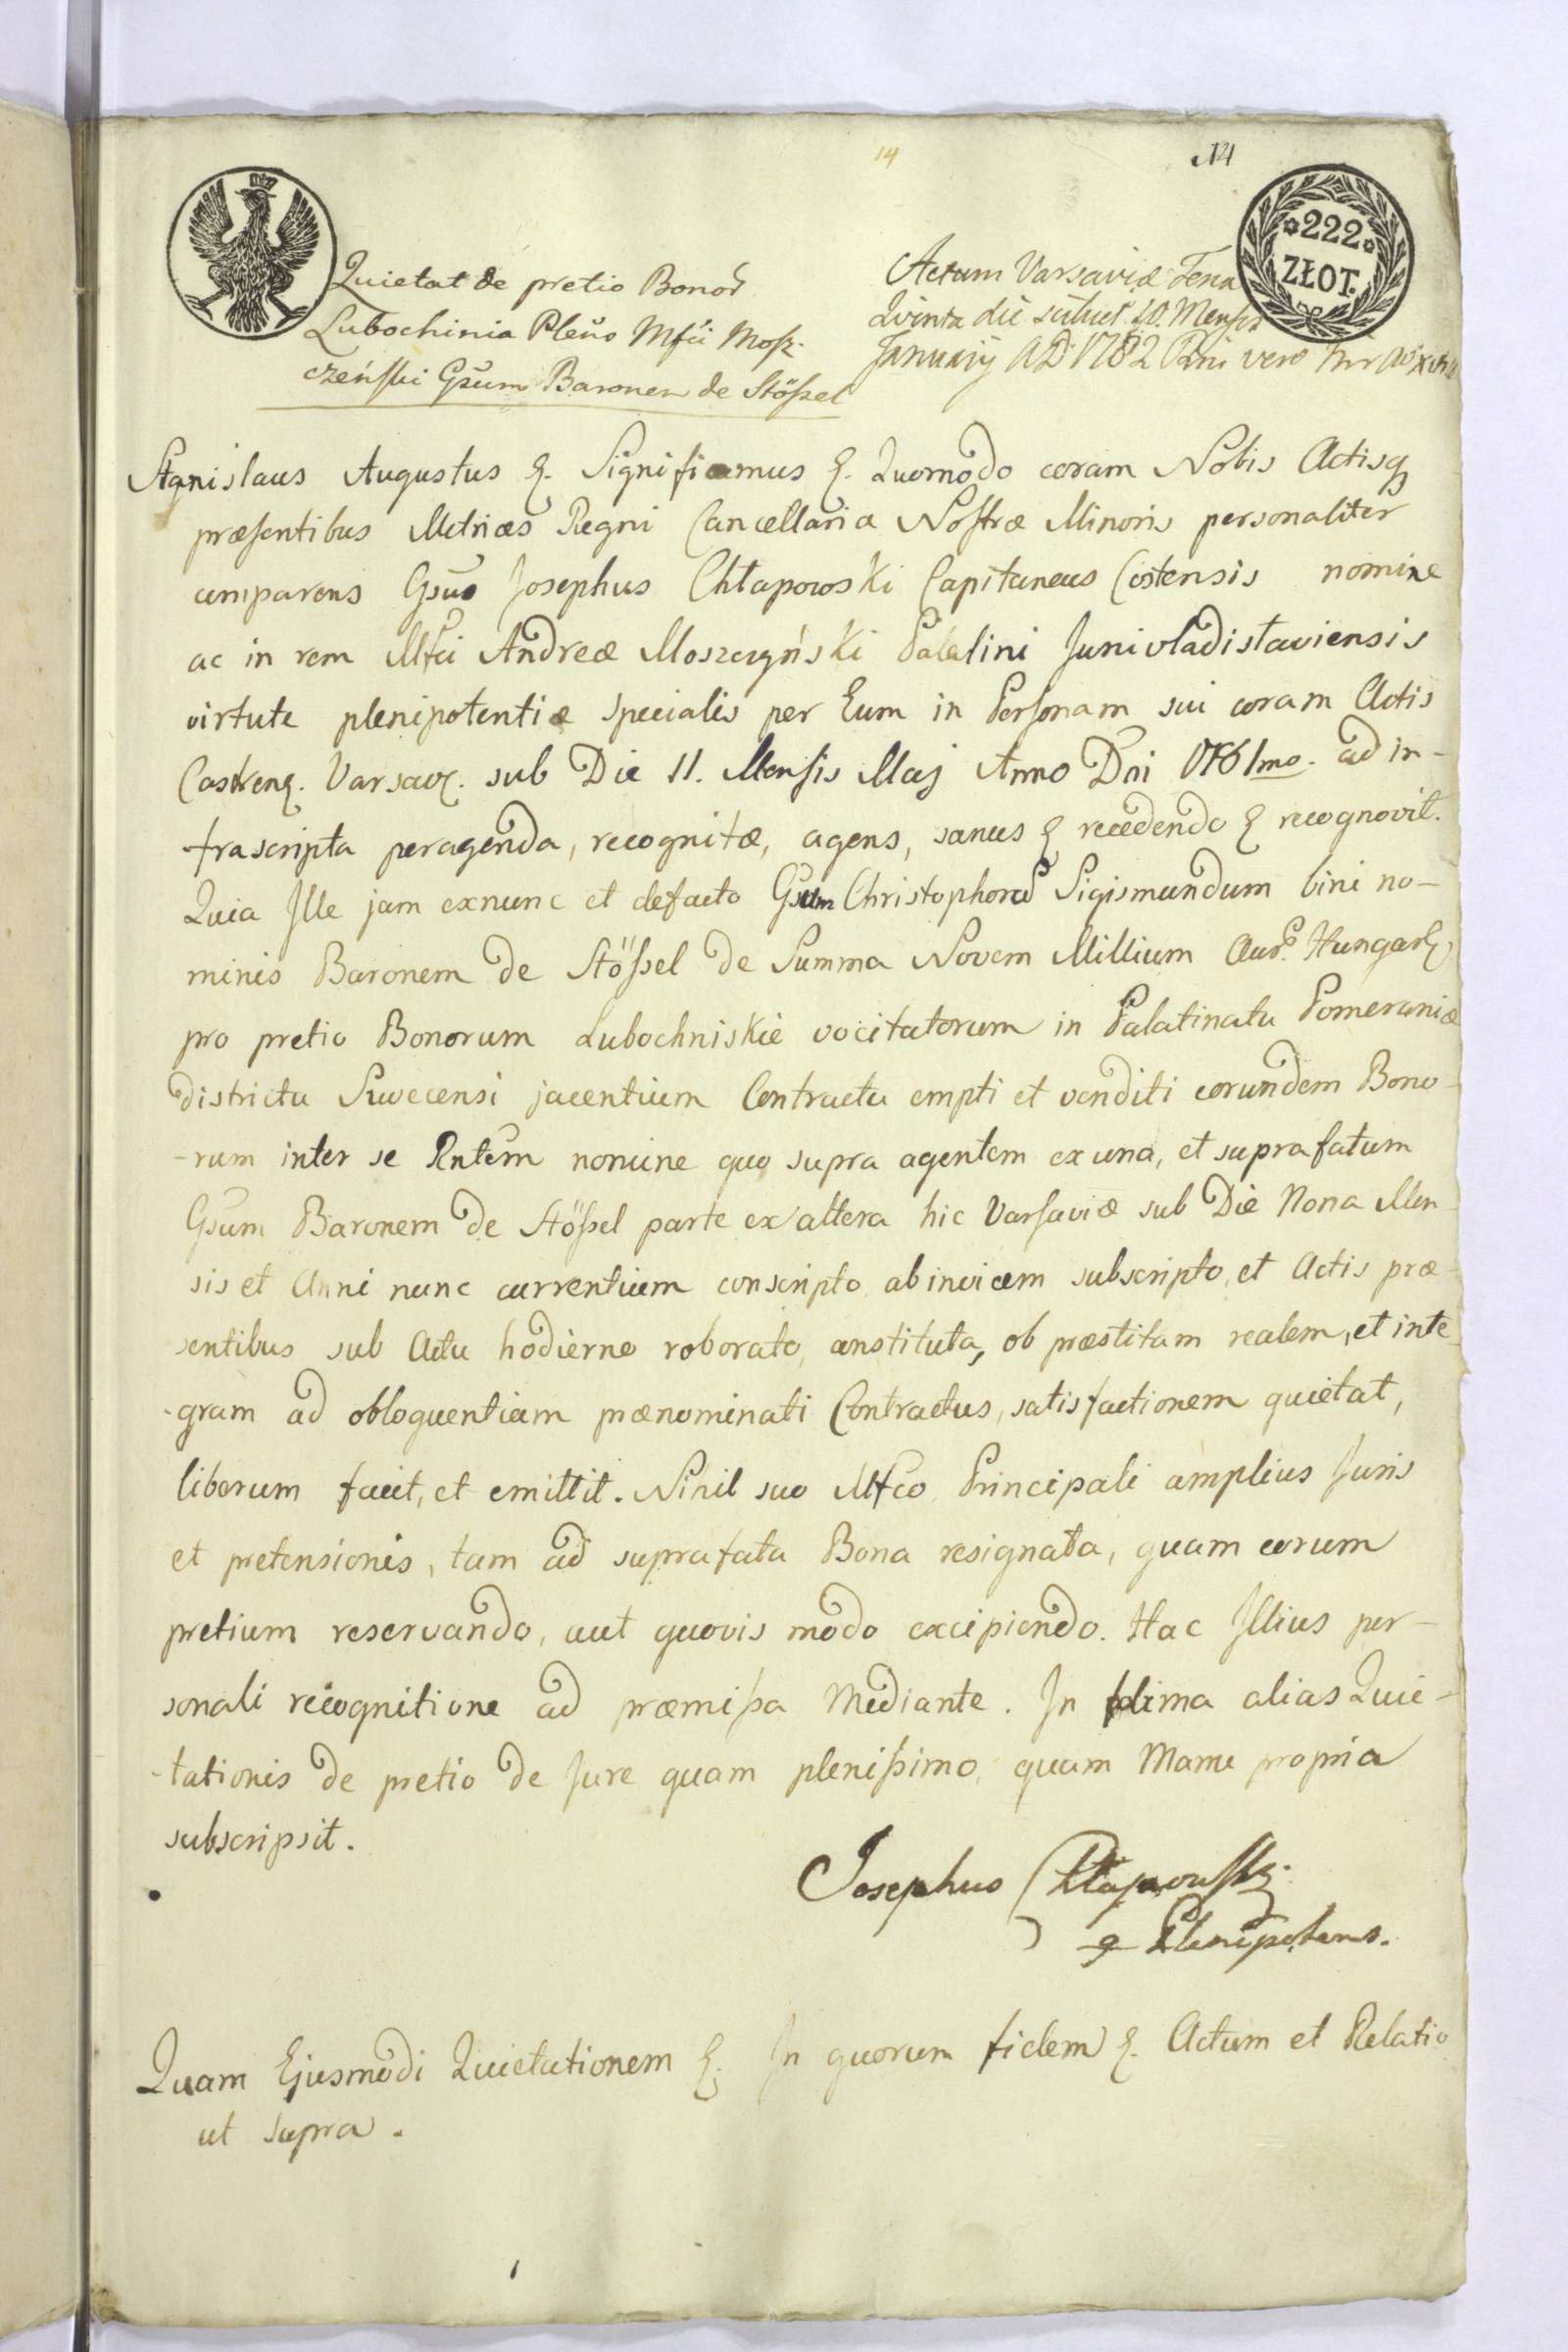 14
222
ZŁOT.
Quietat de pretio Bonor
Lubochinia Pleno Mfci Mosz-
czeński Gsum Baronem de Stößel
Actum Varsaviæ Feria
Qvinta die scilicet 10. Mensis
Januarij AD 1782 Rni vero
Stanislaus Augustus &. Significamus &. Quomodo coram Nobis Actisq
præsentibus Metrices Regni Cancellariæ Nostræ Minoris personaliter
comparens Gsus Josephus Chłapowski Capitaneus Costensis nomine
ac in rem Mfci Andreæ Moszczyński Palatini Junivladislaviensis
virtute plenipotentiæ specialis per Eum in Personam sui coram Actis
Castren. Varsav. sub Die 11. Mensis Maj Anno Dni 1781mo. ad in-
frascripta peragenda, recognitæ, agens, sanus & recedendo & recognovit.
Quia Ille jam exnunc et defacto Gsum Christophorum Sigismundum bini no-
minis Baronem de Stößel de Summa Novem Millium Aur. Hungar
pro pretio Bonorum Lubochniskie vocitatorum in Palatinatu Pomeraniæ
districtu Swecensi jacentium Contractu empti et venditi eorundem Bono-
-rum inter se Rntem nomine quo supra agentem ex una, et suprafatum
Gsum Baronem de Stößel parte ex altera hic Varsaviæ sub Die Nona Men
sis et Anni nunc currentium conscripto ab invicem subscripto, et Actis præ-
sentibus sub Actu hodierno roborato, constituta, ob præstitam realem, et inte-
-gram ad obloquentiam prænominati Contractus, satisfactionem quietat,
liberum facit, et emittit. Nihil suo Mfco Principali amplius Juris
et pretensionis, tam ad suprafata Bona resignata, quam eorum
pretium reservando, aut quovis modo excipiendo. Hac Illius per-
sonali recognitione ad præmißa Mediante. In forma alias Quie-
-tationis de pretio de Jure quam plenißimo, quam Manu propria
subscripsit.
Josephus Chłapowski
Plenipotens.
Quam Ejusmodi Quietationem &. In quorum fidem &. Actum et Relatio
ut supra.